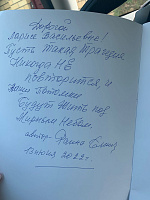 Дорогая
Лариса Васильевна!
Пусть такая трагедия
Никогда не
повторится, и
Ваши потомки
будут жить под
Мирным Небом.
автор
13 июня 2022 г.